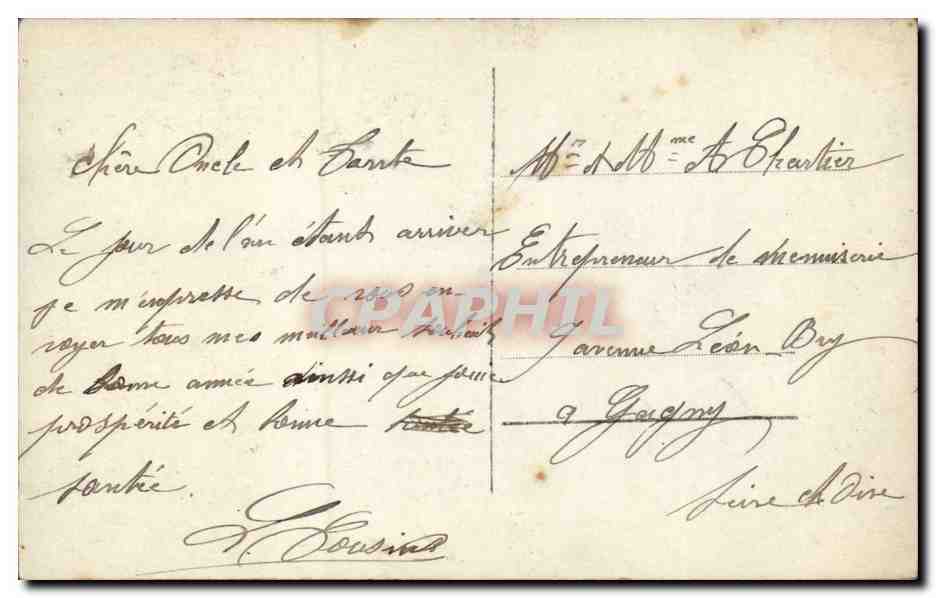 Chère Oncle et Tante
Le jour de l'an étant arriver
je m'empresse de vous en-
voyer tous mes meilleur souhait
de bonne année ainsi que
prospérité et bonne
santée.
Cousin
Mr & Mme A Chartier
Entrepreneur de menuiserie
7 avenue Léon Bry
a Gagny
Seine et Oise
CPAPHIL